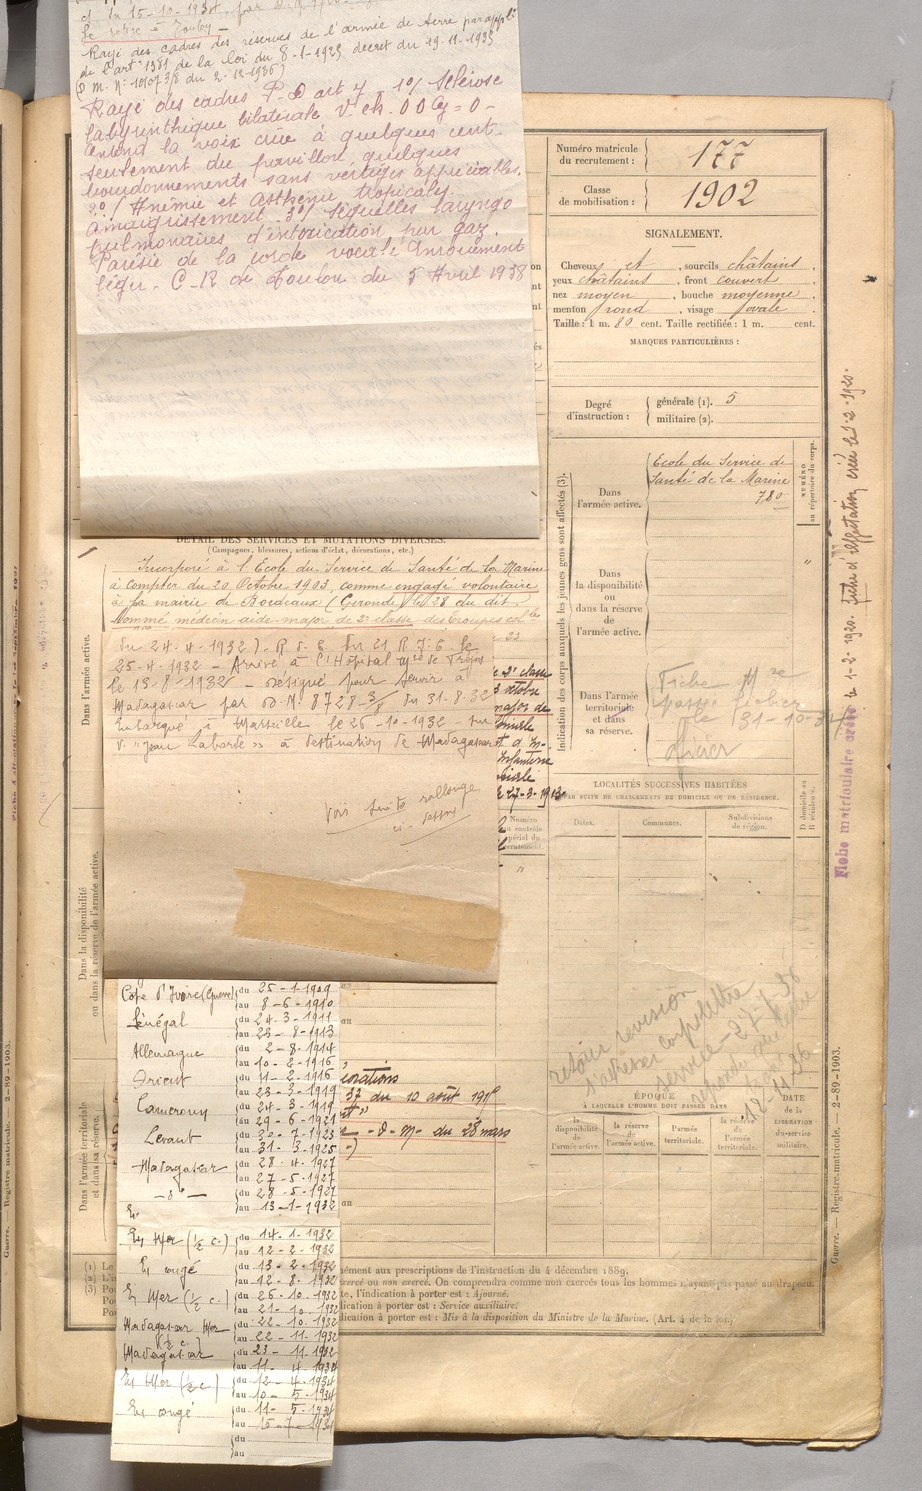 et du 15-10-1934, par D.M.
Se retire à Toulon
Rayé des cadres des réserves de l'armée de terre par appl
de l'art 1381 de la loi du 8-1-1925 décret du 19-11-1935
(D.M. N° 10107 3/8 du 2-12-1936)
Rayé des cadres P.D art 7 - 1°/ Sclérose
labyrinthique bilatérale V. ch. O D G = 0 -
Entend la voix criée à quelques cent.
seulement du pavillon, quelques
bourdonnements sans vertiges appréciables.
2°/ Anémie et Asthénie tropicales.
Amaigrissement. 3°/ Séquelles laryngo
pulmonaires d'intoxication par gaz.
Parésie de la corde vocale Enrouement
léger. C.R de Toulon du 5 Avril 1938
Numéro matricule
du recrutement :
177
Classe
de mobilisation :
1902
SIGNALEMENT.
Cheveux et , sourcils châtains ,
yeux châtains , front couvert
nez moyen , bouche moyenne
menton rond , visage ovale
Taille : 1 m. 80 cent. Taille rectifiée : 1 m. cent.
MARQUES PARTICULIÈRES :
Degré
d'instruction :
générale (1). 5
militaire (2).
Indication des corps auxquels les jeunes gens sont affectés (3).
NUMÉRO
au répertoire du corps.
Dans
l'armée active.
Ecole du Service de
Santé de la Marine
780
Dans
la disponibilité
ou
dans la réserve
de
l'armée active.
"
Dans
l'armée
territoriale
et dans
sa réserve.
Fiche Mle
passée fichier
le 31-10-34
officier
LOCALITÉS SUCCESSIVES HABITÉES
PAR SUITE DE CHANGEMENTS DE DOMICILE OU DE RÉSIDENCE.
Dates.
Communes.
Subdivisions
de région.
D domicile ou
R résidence.
retour revision
s'adresser
service - 27-7-36
12-4-36
ÉPOQUE
À LAQUELLE L'HOMME DOIT PASSER DANS
la
disponibilité
de
l'armée active.
la réserve
de
l'armée active.
l'armée
territoriale.
la réserve
de
l'armée
territoriale.
DATE
de la
LIBÉRATION
du service
militaire.
DÉTAIL DES SERVICES ET MUTATIONS DIVERSES.
(Campagnes, blessures, actions d'éclat, décorations, etc.)
Dans l'armée active.
Incorporé à l'Ecole du Service de Santé de la Marine
à compter du 20 Octobre 1903, comme engagé volontaire
à la mairie de Bordeaux (Gironde) le 28 du dit.
Nommé médecin aide-major de 2e classe des Troupes colles
du 24-4-1932). R.d.C. du 21 R.I.C. le
25-4-1932 - Arrivé à l'Hôpital mre de Fréjus
le 13-8-1932 - désigné pour servir à
Madagascar par D.M. 8728-3/8 du 31-8-32
Embarqué à Marseille le 26-10-1932 - sur
le "Jean Laborde" à destination de Madagascar
Voir suite rallonge
ci-dessus
27-3-1913
Numéro
au contrôle
spécial du
recrutement.
"
Dans la disponibilité
ou dans la réserve de l'armée active.
Dans l'armée territoriale
et dans sa réserve.
Côte d'Ivoire (Guerre) du 25-1-1909
au 8-6-1910
Sénégal du 24-3-1911
au 23-8-1913
Allemagne du 2-8-1914
au 10-2-1916
Orient du 11-2-1916
au 23-3-1919
Cameroun du 24-3-1919
au 29-6-1921
Levant du 30-7-1923
au 31-3-1925
Madagascar du 28-4-1927
au 27-5-1927
- d° - du 28-5-1927
au 13-1-1932
En
En Mer (1/2 c.) du 14-1-1932
au 12-2-1932
En congé du 13-2-1932
au 12-8-1932
En Mer (1/2 c.) du 26-10-1932
au 21-10-1932
Madagascar Mer (1/2 c) du 22-10-1932
au 22-11-1932
Madagascar du 23-11-1932
au 11-4-1934
En Mer (1/2 c) du 12-4-1934
au 10-5-1934
En congé du 11-5-1934
au 15-7-1934
du
au
37 du 10 août 191
D.M. du 28 mars
au
(1) Le
(2) L'i
(3) Pou
ément aux prescriptions de l'instruction du 4 décembre 1889.
exercé ou non exercé. On comprendra comme non exercés tous les hommes n'ayant pas passé au drapeau.
te, l'indication à porter est : Ajourné.
dication à porter est : Service auxiliaire.
dication à porter est : Mis à la disposition du Ministre de la Marine. (Art. 4 de la loi.)
Guerre. — Registre-matricule. — 2-89-1903.
Fiche matriculaire créée le 1-2-1920. fiche d'affectation créée le 1-2-1920.
Guerre. Registre matricule. 2-89-1903.